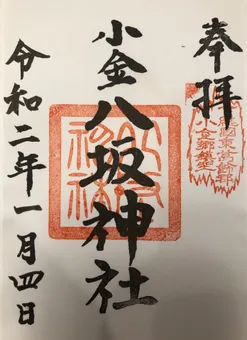 奉拝
小金
八坂神社
令和二年一月四日